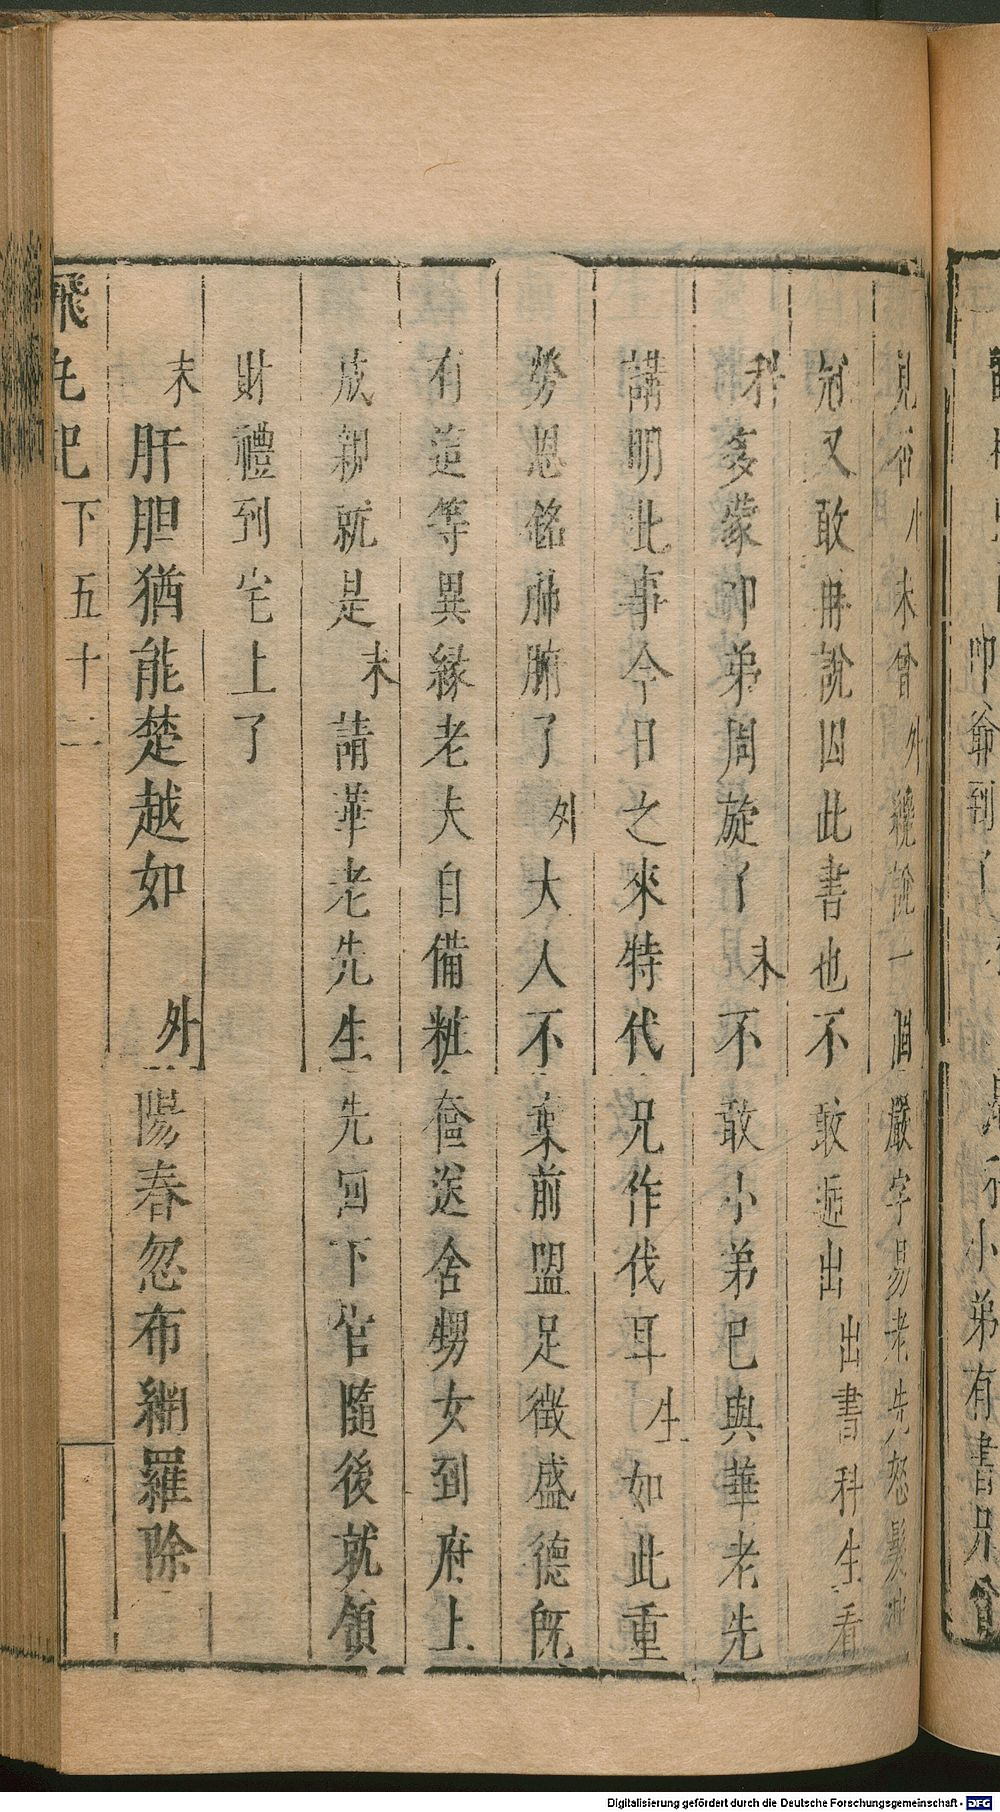 見否小未曾外纔說一個嚴字易老先怒髮
冠又敢再說因此書也不敢遞出出書科生看
科多蒙卬弟周旋了末不敢小弟已與華老先
講明此事今日之來特代兄作伐耳生如此重
勞恩銘肺腑了外大人不棄前盟足徵盛德旣
有這等異緣老夫自備粧奩送舍甥女到府上
成親就是末請華老先生先回下官隨後就領
財禮到宅上了
末肝胆猶能楚越如外陽春忽布網羅除
飛丸記下五十二
卬爺到了
小弟有書兄
Digitalisierung gefördert durch die Deutsche Forschungsgemeinschaft - DFG